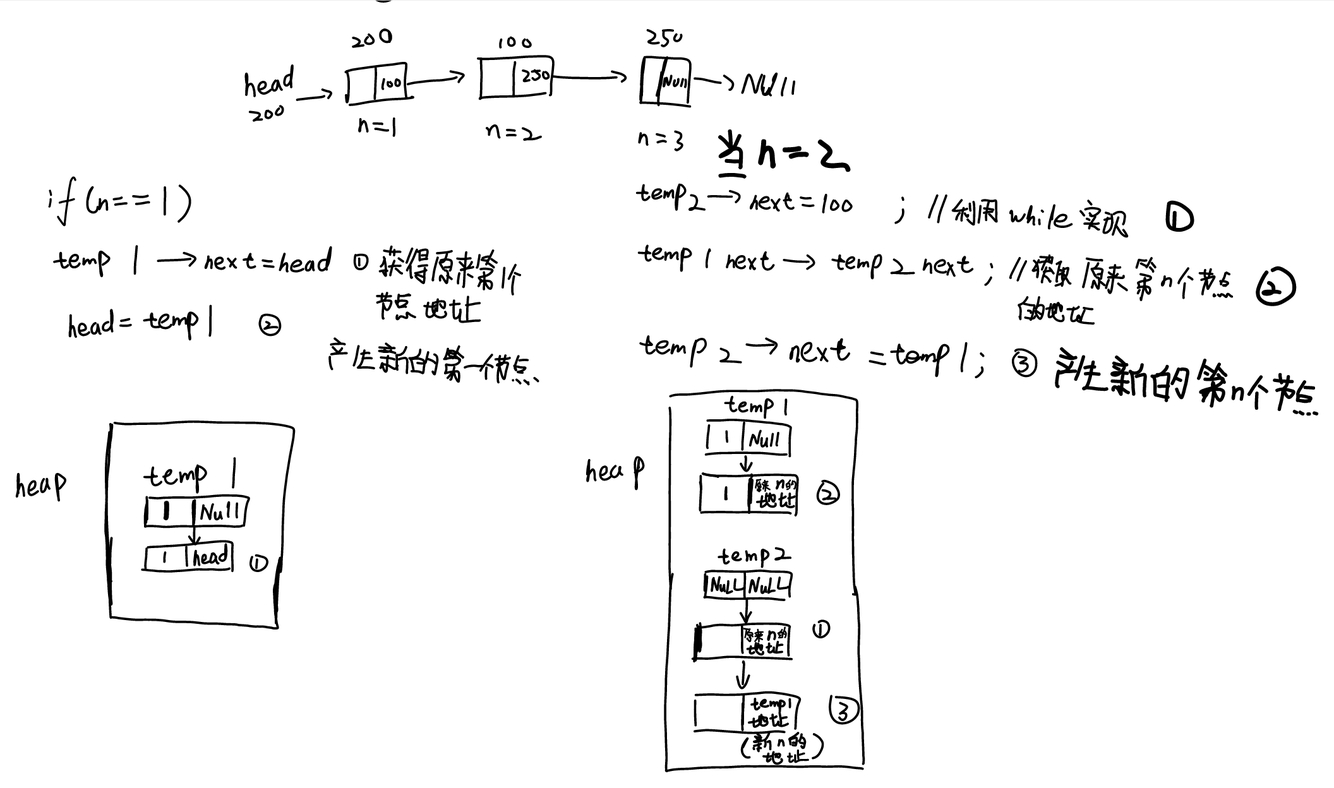 200 100 250
head
200
100 250 Null NUll
n=1 n=2 n=3
当n=2
if(n==1)
temp 1→next=head ① 获得原来第1个
节点地址
head=temp1 ②
产生新的第一个节点
temp2→next=100 ; //利用while实现 ①
temp1 next→temp2 next; //获取原来第n个节点 ②
的地址
temp2→next=temp1; ③ 产生新的第n个节点
heap
temp 1
1 Null
1 head ①
heap
temp1
1 Null
1 原来n的地址 ②
temp2
NuLL NuLL
原来n的地址 ①
temp1地址 ③
(新n的地址)